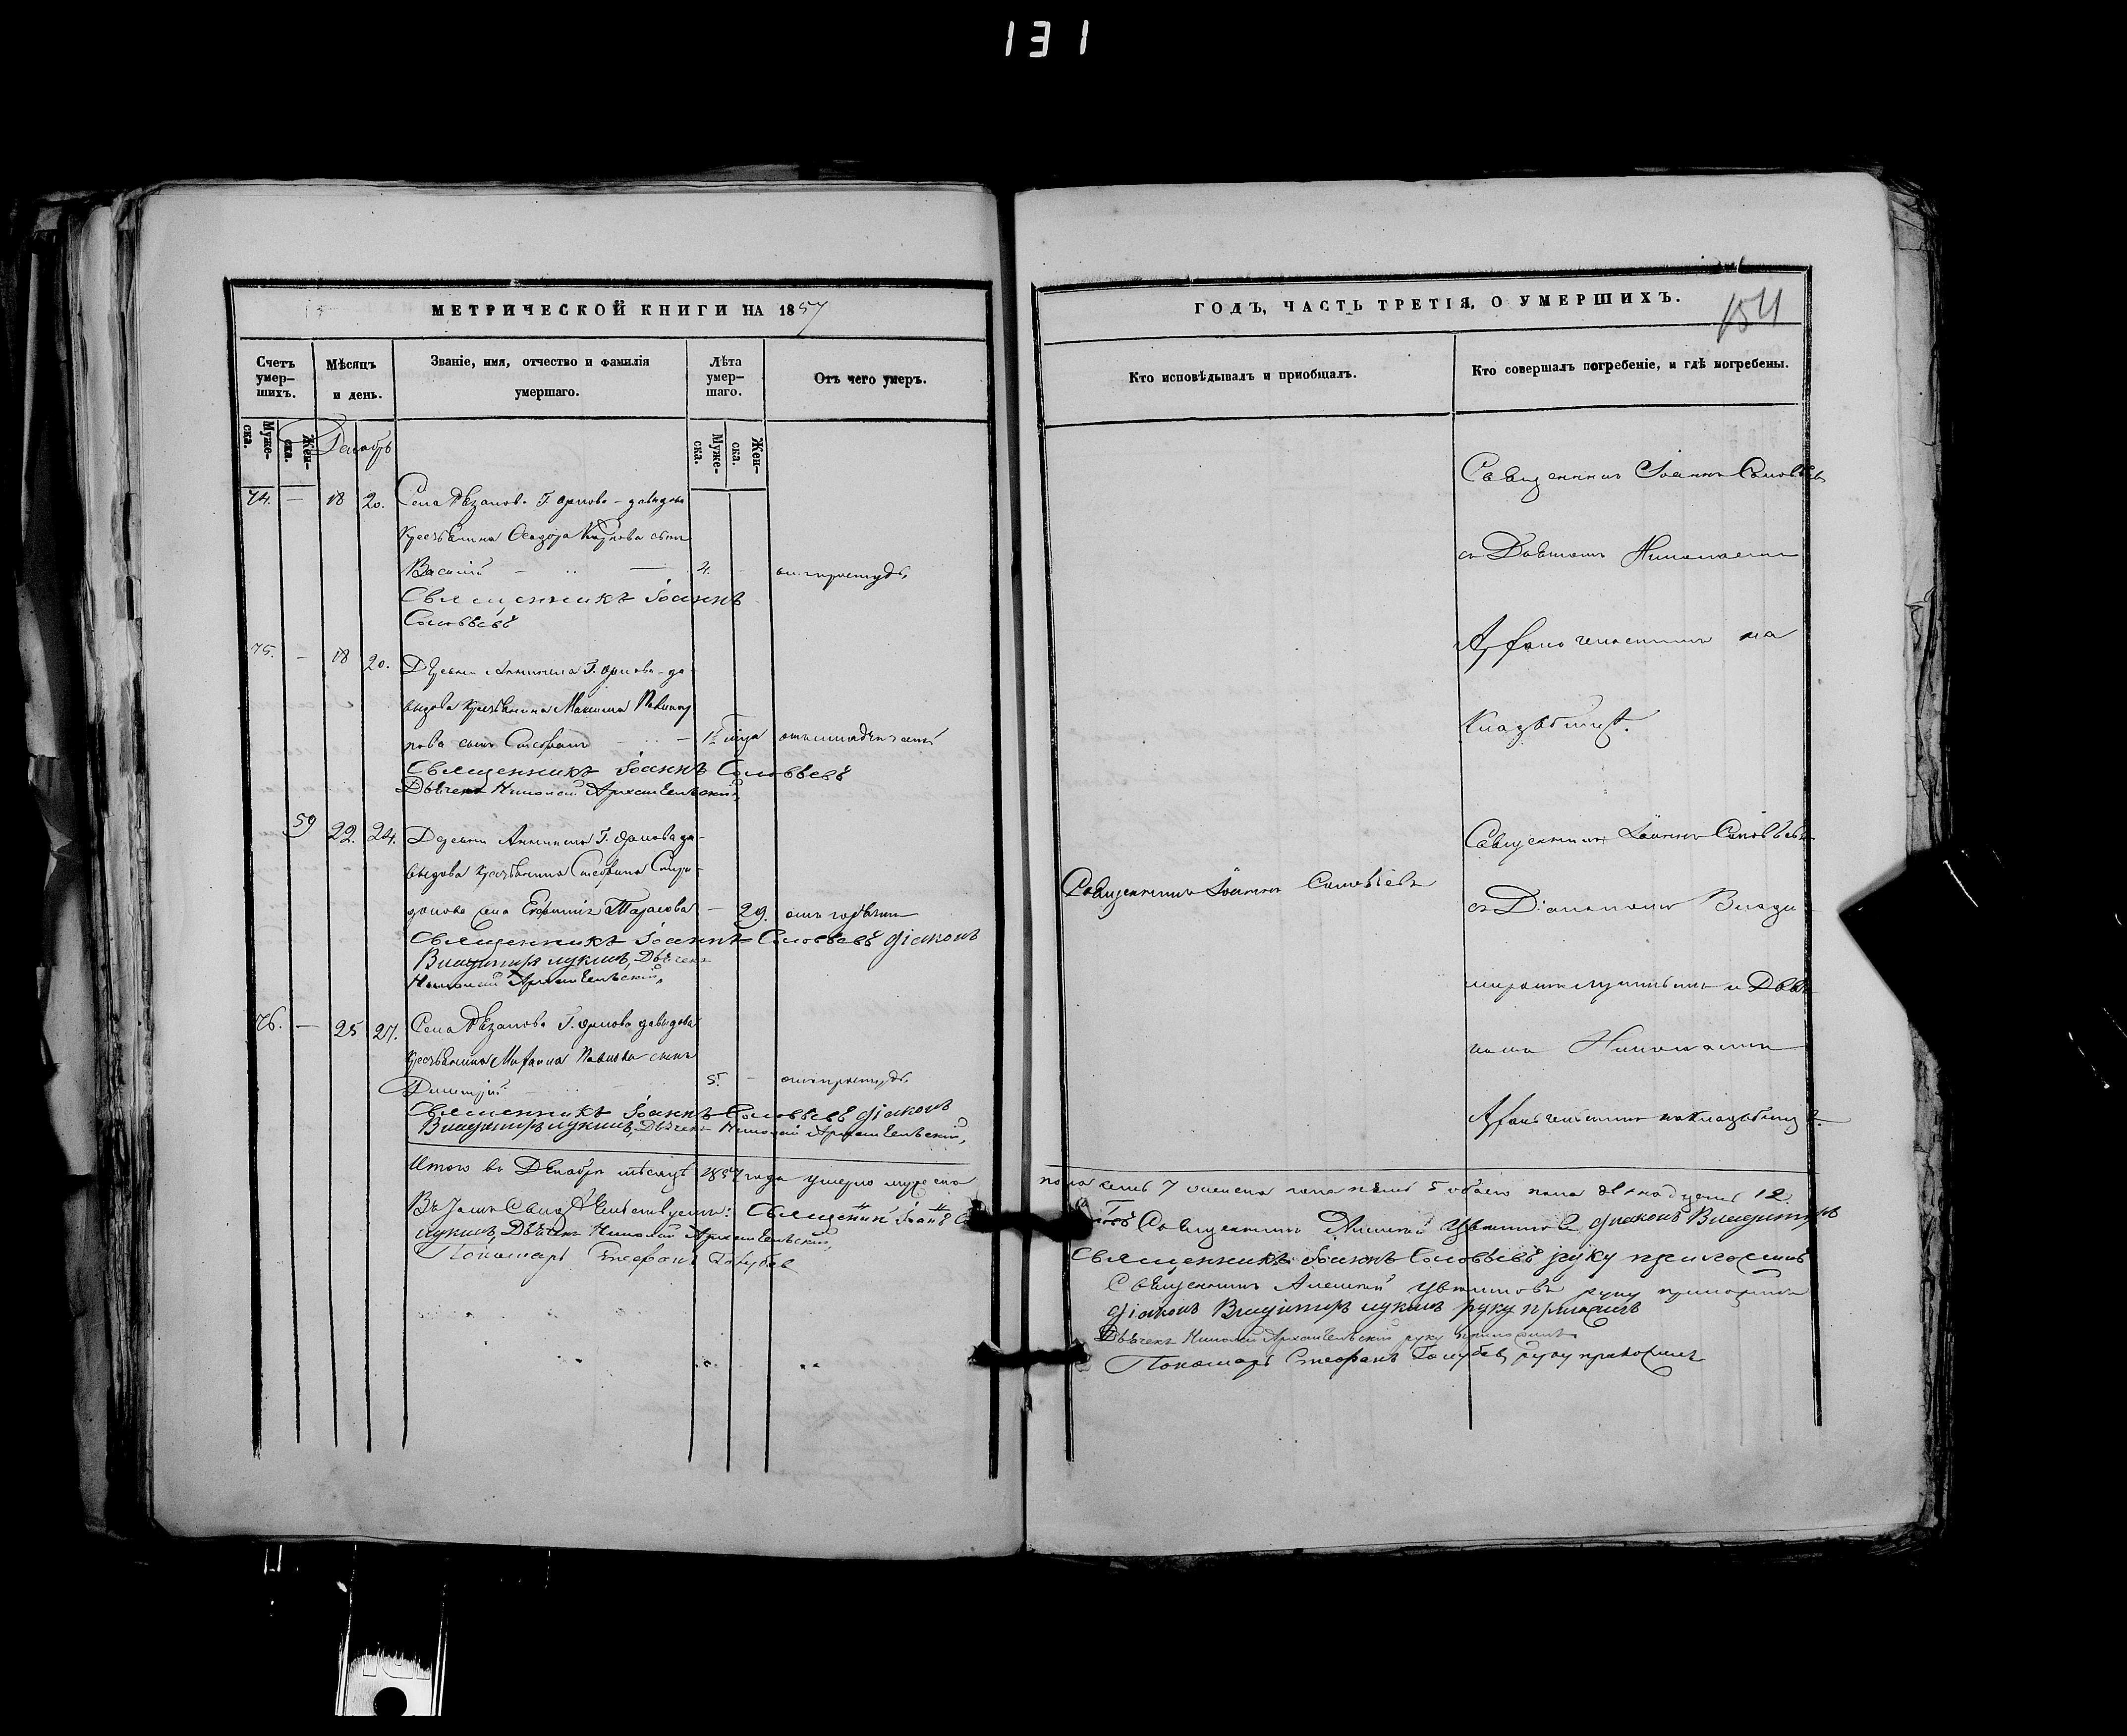 131
МЕТРИЧЕСКОЙ КНИГИ НА 1857
Счетъ умер–шихъ.
Мѣсяцъ и день.
Званіе, имя, отчество и фамилія умершаго.
Лѣта умер–шаго.
Отъ чего умеръ.
Муже–ска.
Жен–ска.
Декабрь
Муже–ска.
Жен–ска.
74. — 18 20. Села Рѣзанова Г. Орлова-давыдова
крестьянина сынъ
Василій — 4. — отъ простуды
Священникъ Іоаннъ
Соловьевъ
75. — 18 20. Деревни Г. Орлова-да-
выдова крестьянина Максима
сынъ Стефанъ — отъ младенческой
Священникъ Іоаннъ Соловьевъ
Дьячекъ Николай Архангельскій
59 22. 24. Деревни Г. Орлова да-
выдова крестьянина Стефана Спири-
донова жена Тарасова — 29. отъ горячки
Священникъ Іоаннъ Соловьевъ діаконъ
Владимиръ Лукинъ, Дьячекъ
Николай Архангельскій,
76. — 25 27. Села Рѣзанова Г. Орлова давыдова
крестьянина Павлова сынъ
Димитрій 5. — отъ простуды
Священникъ Іоаннъ Соловьевъ діаконъ
Владимиръ Лукинъ, Дьячекъ Николай Архангельскій,
Итого въ Декабрѣ мѣсяцѣ 1857 года умерло мужеска
Въ Свидѣтельствуемъ: Священникъ Іоаннъ
Лукинъ, Дьячекъ Николай Архангельскій,
Пономарь Стефанъ Голубев
ГОДЪ, ЧАСТЬ ТРЕТІЯ, О УМЕРШИХЪ.
154
Кто исповѣдывалъ и пріобщалъ.
Кто совершалъ погребеніе, и гдѣ погребены.
Священникъ Іоаннъ Соловьевъ
съ Дьячкомъ Николаемъ
Архангельскимъ на
Кладбищѣ.
Священникъ Іоаннъ Соловьевъ
Священникъ Іоаннъ Соловьевъ
съ Діакономъ Влади-
миромъ Лукинымъ и Дьяч-
комъ Николаемъ
Архангельскимъ на кладбищѣ.
пола семь 7 женска пола пять 5 обоего пола двенадцать 12.
Священникъ Алексій Цвѣтковъ діаконъ Владимиръ
Священникъ Іоаннъ Соловьевъ руку приложилъ
Священникъ Алексій Цвѣтковъ руку приложилъ
діаконъ Владимиръ Лукинъ руку приложилъ
Дьячекъ Николай Архангельскій руку приложилъ
Пономарь Стефанъ Голубев руку приложилъ